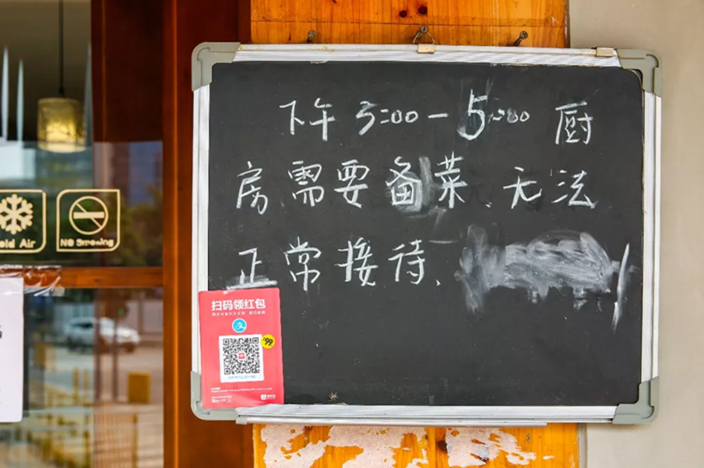 下午3:00-5:00 厨
房需要备菜、无法
正常接待、
old Air
No Smoking
扫码领红包